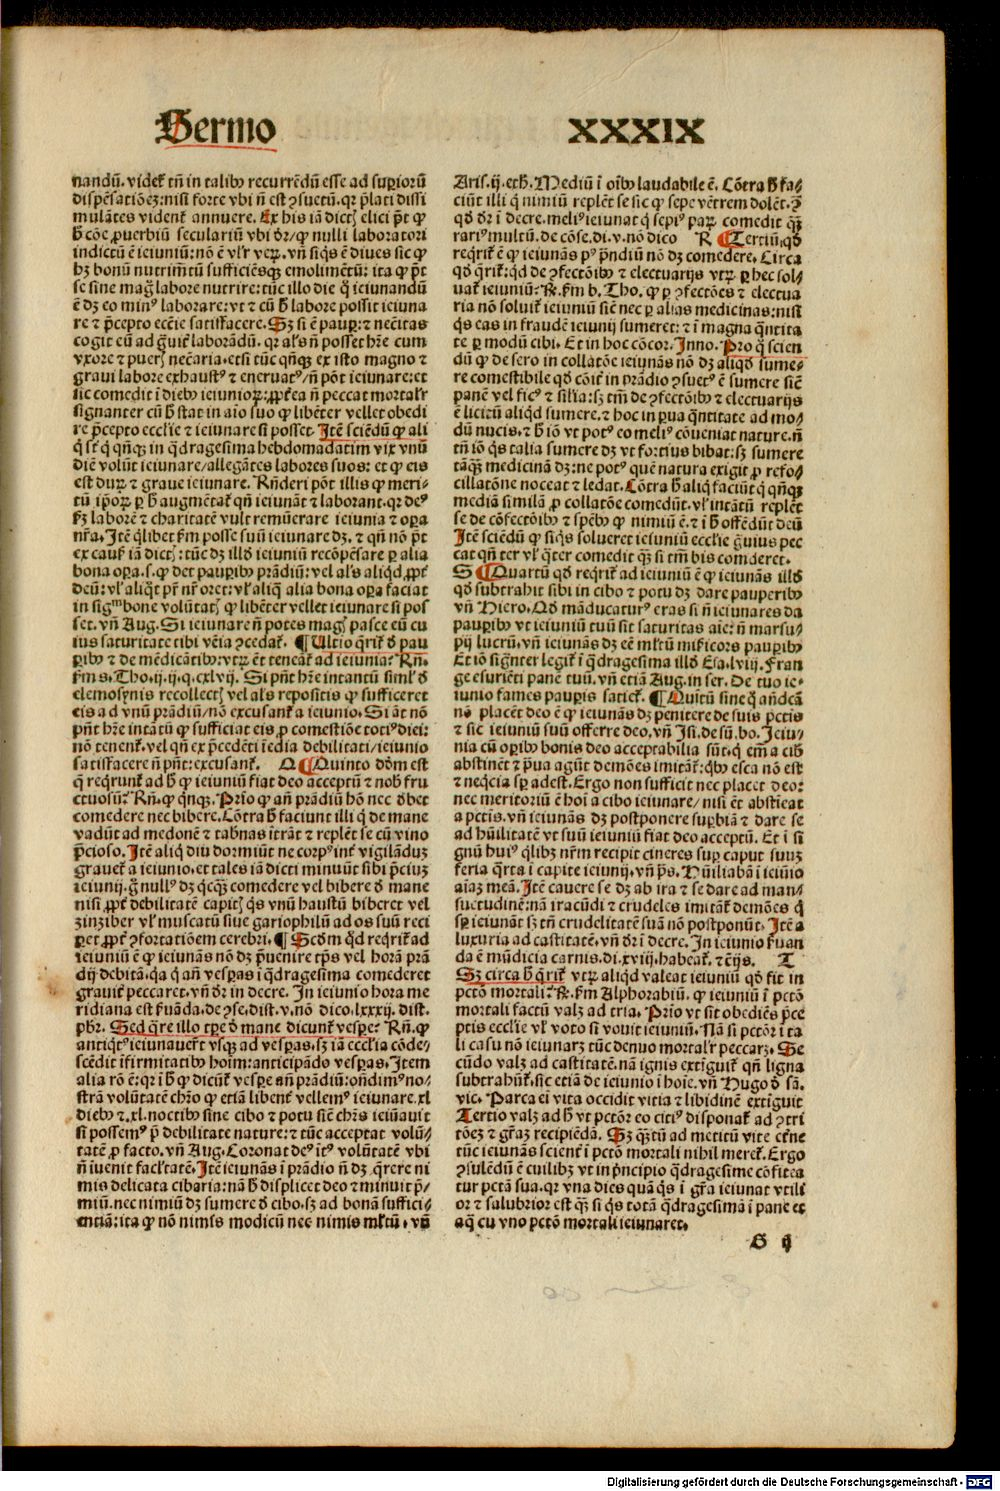 Sermo XXXIX
nandū. videt᷑ tn̄ in talibꝰ recurrēdū esse ad superiorū
dispēsatiōez: nisi forte vbi n̄ est ꝯsuetū. qꝛ p̄lati dissi
mulātes vident᷑ annuere. Ex his iā dictꝭ elici pōt ꝙ
h̄ cōe ꝓuerbiū seculariū vbi dr̄/ ꝙ nulli laboratori
indictū ē ieiuniū: nō ē vl'r veꝝ. vn̄ siqͥs ē diues sic ꝙ
hꝫ bonū nutrim̄tū sufficiēsqꝫ emolimētū: ita ꝙ pōt
se sine mag̊ labore nutrire: tūc illo die qͦ ieiunandū
ē dꝫ eo minꝰ laborare: vt ⁊ cū h̄ labore possit ieiuna
re ⁊ p̄cepto eccl'ie satisfacere. Sꝫ si ē pauꝑ: ⁊ nec̄itas
cogit eū ad gͣuiꝰ laborādū. qꝛ al's n̄ posset hr̄e cum
vxore ⁊ puerꝭ nec̄aria. etsi tūc qn̄qꝫ ex isto magno ⁊
graui labore exhaustꝰ ⁊ eneruatꝰ/ n̄ pōt ieiunare: et
sic comedit ī diebꝰ ieiunioꝝ: ꝓpt'ea n̄ peccat mortal'r
signanter cū h̄ stat in aīo suo ꝙ libēter vellet obedi
re p̄cepto eccl'ie ⁊ ieiunare si posset. Itē sciēdū ꝙ ali
qͥ st̄ qͥ qn̄qꝫ in qͣdragesima hebdomadatim vix vnū
diē volūt ieiunare/ allegātes labores suos: et ꝙ eis
est duꝝ ⁊ graue ieiunare. Rn̄deri pōt illis ꝙ meri-
tū ip̄oꝝ ꝑ h̄ augmētat᷑ qn̄ ieiunāt ⁊ laborant. qꝛ deꝰ
ẜm laborē ⁊ charitatē vult remūerare ieiunia ⁊ oꝑa
nr̄a. Itē qͥlibet ẜm posse suū ieiunare dꝫ. ⁊ qn̄ nō pōt
ex cauẜ iā dictꝭ: tūc dꝫ illd̓ ieiuniū recōpēsare ꝑ alia
bona oꝑa. s. ꝙ det pauꝑibꝰ prādiū: vel al's aliqͥd ꝓpt'
deū: vl' aliqͦt pr̄ nr̄ oret: vl' aliqͣ alia bona oꝑa faciat
in sigᵐ bone volūtatꝭ ꝙ libēter vellet ieiunare si pos
set. vn̄ Aug. Si ieiunare n̄ potes magꝭ pasce eū cu
ius saturitate tibi vēia ꝯcedat᷑. ¶ Ultīo qͥrit᷑ d̓ pau
ꝑibꝰ ⁊ de mēdicātibꝰ: vtꝝ ēt teneāt᷑ ad ieiunia? Rn̄.
ẜm s. Tho. ij. ij. q. cxlvij. Si pn̄t hr̄e intantū siml' d̓
elemosynis recollectꝭ vel al's repositis ꝙ sufficeret
eis ad vnū prādiū/ nō excusant᷑ a ieiunio. Si āt nō
pn̄t hr̄e intātū ꝙ sufficiat eis ꝓ comestiōe totiꝰ diei:
nō tenent᷑. vel qn̄ ex p̄cedēti īedia debilitati/ ieiunio
satisfacere n̄ pn̄t: excusant᷑. Q ¶ Quinto dōm est
q̄ reqͥrunt᷑ ad h̄ ꝙ ieiuniū fiat deo acceptū ⁊ nob̄ fru
ctuosū? Rn̄. ꝙ qͥnqꝫ. Prīo ꝙ an̄ prādiū hō nec d̓bet
comedere nec bibere. Cōtra h̄ faciunt illi qͥ de mane
vadūt ad medonē ⁊ tab̓nas ītrāt ⁊ replēt se cū vino
p̄cioso. Itē aliqͥ diu dormiūt ne corpꝰ int' vigilāduꝫ
grauet᷑ a ieiunio. et tales iā dicti minuūt sibi p̄ciuꝫ
ieiunij. gͦ nullꝰ dꝫ qͥcqͣꝫ comedere vel bibere d̓ mane
nisi ꝓpt' debilitatē capitꝭ qͥs vnū haustū biberet vel
zinziber vl' muscatū siue gariophilū ad os suū reci
ꝑet ꝓpt' ꝯfortatiōem cerebri. ¶ Scd̓m qd̓ reqͥrit᷑ ad
ieiuniū ē ꝙ ieiunās nō dꝫ p̄uenire tp̄s vel horā prā
dij debitā. qͣ qͥ an̄ vesꝑas ī qͣdragesima comederet
grauit' peccaret. vn̄ dr̄ in decre. In ieiunio hora me
ridiana est ẜuāda. de ꝯse. dist. v. nō dico. lxxxij. dist.
pb̄r. Sed qͣre illo tꝑe d̓ mane dicunt᷑ vesꝑe? Rn̄. ꝙ
antiqͥtꝰ ieiunauer̄t vsqꝫ ad vesꝑas. sꝫ iā eccl'ia cōde-
scēdit īfirmitatibꝰ hoīm: anticipādo vesꝑas. Item
alia rō ē: qꝛ ī h̄ ꝙ dicūt᷑ vesꝑe an̄ prādiū: on̄dimꝰ no-
strā volūtatē chr̄o ꝙ etiā libent' vellemꝰ ieiunare. xl
diebꝰ ⁊. xl. noctibꝰ sine cibo ⁊ potu siē chr̄s ieiūauit
si possemꝰ p̄ debilitate nature: ⁊ tūc acceptat volū-
tatē ꝓ facto. vn̄ Aug. Coronat deꝰ ītꝰ volūtatē vbi
n̄ īuenit facl'tatē. Itē ieiunās ī prādio n̄ dꝫ qͣrere ni
mis delicata cibaria: nā h̄ displicet deo ⁊ minuit p̄-
miū. nec nimiū dꝫ sumere d̓ cibo. sꝫ ad bonā suffici-
entiā: ita ꝙ nō nimis modicū nec nimis ml'tū. vn̄
Aris. ij. eth. Mediū ī oībꝰ laudabile ē. Cōtra h̄ fa-
ciūt illi qͥ nimiū replēt se sic ꝙ sepe vētrem dolēt. ꝯͣ
qd̓ dr̄ ī decre. meliꝰ ieiunat qͥ sepiꝰ paꝝ comedit qͣꝫ
rariꝰ multū. de cōse. di. v. nō dico R ¶ Tertiū. qd̓
reqͥrit᷑ ē ꝙ ieiunās pꝰ prādiū nō dꝫ comedere. Circa
qd̓ qͥrit᷑: qd̓ de ꝯfectōibꝰ ⁊ electuarijs vtꝝ ꝑ hec sol-
uat᷑ ieiuniū? R̄. ẜm b. Tho. ꝙ ꝑ ꝯfectōes ⁊ electua
ria nō soluit᷑ ieiuniū siē nec ꝑ alias medicinas: nisi
qͥs eas in fraudē ieiunij sumeret: ⁊ ī magna qͣntita
te ꝑ modū cibi. Et in hoc cōcor. Inno. Pro qͦ scien
dū ꝙ de sero in collatōe ieiunās nō dꝫ aliqd̓ sume-
re comestibile qd̓ cōit' in prādio ꝯsuetꝰ ē sumere siē
panē vel ficꝰ ⁊ sil'ia: sꝫ tm̄ de ꝯfectōibꝰ ⁊ electuarijs
ē licitū aliqd̓ sumere. ⁊ hoc in ꝑua qͣntitate ad mo-
dū nucis. ⁊ h̄ iō vt potꝰ eo meliꝰ cōueniat nature. n̄
tn̄ iō qͥs talia sumere dꝫ vt fortius bibat: sꝫ sumere
tāqͣꝫ medicinā dꝫ: ne potꝰ quē natura exigit ꝓ refo-
cillatōne noceat ⁊ ledat. Cōtra h̄ aliqͥ faciūt qͥ qn̄qꝫ
mediā similā ꝓ collatōe comedūt. vl' intātū replēt
se de cōfectōibꝰ ⁊ spēbꝰ ꝙ nimiū ē. ⁊ ī h̄ offēdūt deū
Itē sciēdū ꝙ siqͥs solueret ieiuniū eccl'ie gͣuius pec
cat qn̄ ter vl' qͣter comedit qͣꝫ si tm̄ bis comderet.
S ¶ Quartū qd̓ reqͥrit᷑ ad ieiuniū ē ꝙ ieiunās illd̓
qd̓ subtrahit sibi in cibo ⁊ potu dꝫ dare pauperibꝰ
vn̄ Hiero. Qd̓ māducaturꝰ eras si n̄ ieiunares da
pauꝑibꝰ vt ieiuniū tuū sit saturitas aīe: n̄ marsu-
pij lucrū. vn̄ ieiunās dꝫ eē ml'tū mīficors pauꝑibꝰ
Et iō sign̄ter legit᷑ ī qͣdragesima illd̓ Esa. lviij. Fran
ge esuriēti panē tuū. vn̄ etiā Aug. in ser. De tuo ie-
iunio fames pauꝑis saciet᷑. ¶ Quītū sine qͦ an̄dcā
nō placēt deo ē ꝙ ieiunās dꝫ penitere de suis pctīs
⁊ sic ieiuniū suū offerre deo. vn̄ Isi. de sū. bo. Ieiu-
nia cū oꝑibꝰ bonis deo acceptabilia sūt. qͥ em̄ a cib̄
abstinēt ⁊ praua agūt demōes imitāt᷑: qͥbꝰ esca nō est
⁊ neqͥcia sꝑ adest. Ergo non sufficit nec placet deo:
nec meritoriū ē hoī a cibo ieiunare/ nisi ēt abstieat
a pctīs. vn̄ ieiunās dꝫ postponere suꝑbiā ⁊ dare se
ad hūilitatē vt suū ieiuniū fiat deo acceptū. Et ī si
gnū huiꝰ qͥlibꝫ nr̄m recipit cineres suꝑ caput suuꝫ
feria qͣrta ī capite ieiunij. vn̄ ps. Hūiliabā ī ieiūio
aīaꝫ meā. Itē cauere se dꝫ ab ira ⁊ se dare ad man-
suetudinē: nā iracūdi ⁊ crudeles imitāt᷑ demōes qͥ
sꝑ ieiunāt sꝫ tn̄ crudelitatē suā nō postponūt. Itē a
luxuria ad castitatē. vn̄ dr̄ ī decre. In ieiunio ẜuan
da ē mūdicia carnis. di. xviij. habeat᷑. ⁊ ēijs. T
Sꝫ circa h̄ qͥrit᷑ vtꝝ aliqd̓ valeat ieiuniū qd̓ fit in
pctō mortali? R̄. ẜm Alphorabiū. ꝙ ieiuniū ī pctō
mortali factū valꝫ ad tria. Prīo vt sit obediēs p̄ce
ptis eccl'ie vl' voto si vouit ieiuniū. Nā si pctōr ī ta
li casu nō ieiunarꝫ tūc denuo mortal'r peccarꝫ. Se
cūdo valꝫ ad castitatē. nā ignis extīguit᷑ qn̄ ligna
subtrahūt᷑. sic etiā de ieiunio ī hoīe. vn̄ Hugo d̓ sā.
vic. Parca ei vita occidit vitia ⁊ libidinē extīguit
Tertio valꝫ ad h̄ vt pctōr eo citiꝰ disponat᷑ ad ꝯtri
tōeꝫ ⁊ gr̄aꝫ recipiēdā. Sꝫ qͣꝫtū ad meritū vite et̄ne
tūc ieiunās scient' ī pctō mortali nihil meret᷑. Ergo
ꝯsulēdū ē cuilibꝫ vt in prīncipio qͣdragesime cōfitea
tur pctā sua. qꝛ vna dies quā qͥs ī gr̄a ieiunat vtili
or ⁊ salubrior est qͣꝫ si qͥs totā qͣdragesimā ī pane et
aqͣ cū vno pctō mortali ieiunaret.
G ij
Digitalisierung gefördert durch die Deutsche Forschungsgemeinschaft - DFG